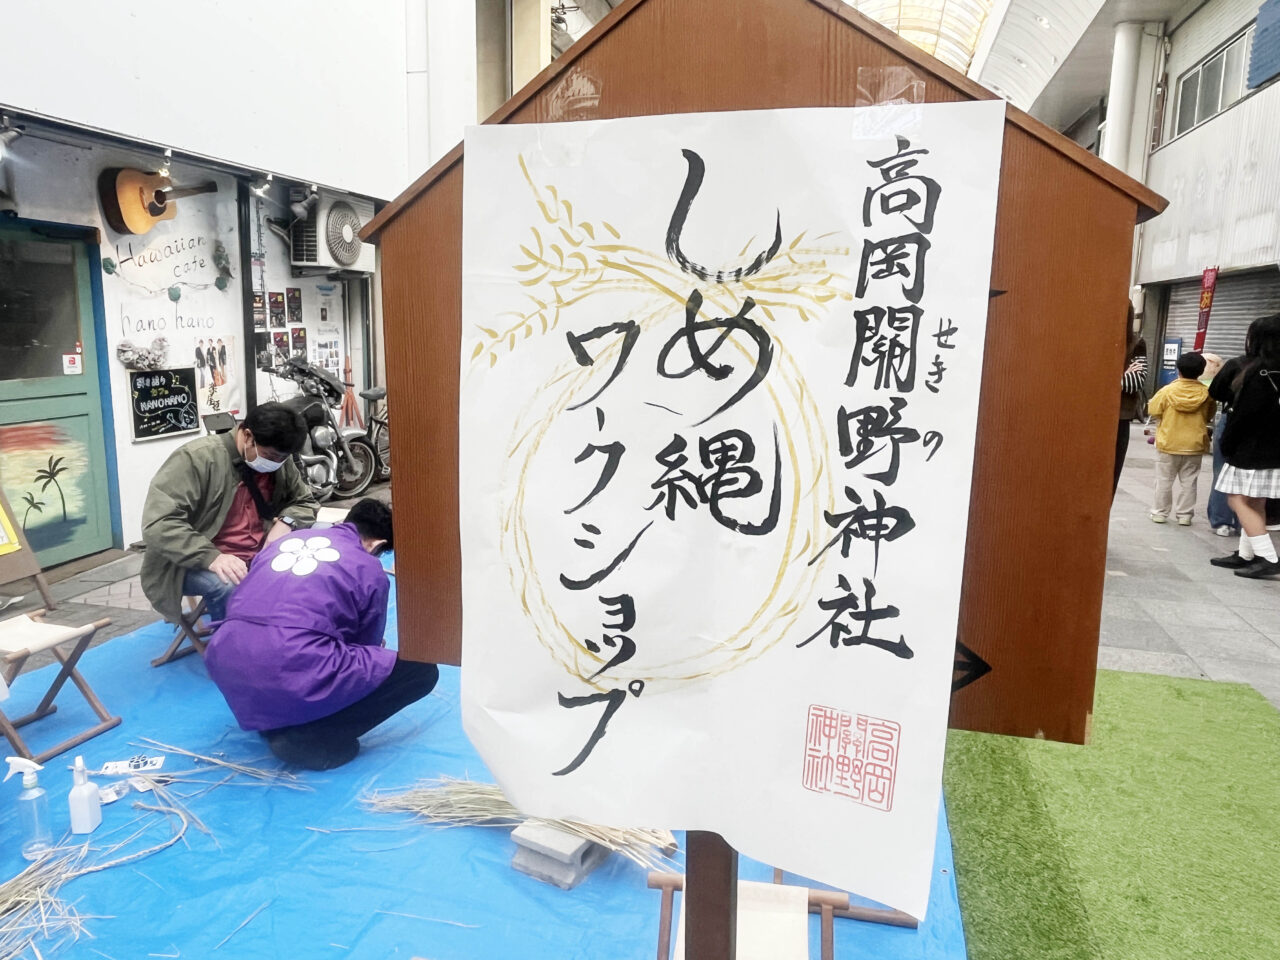 高岡關野神社
せきの
しめ縄
ワークショップ
高岡
關野
神社
Hawaiian
cafe
hano hano
HANOHANO